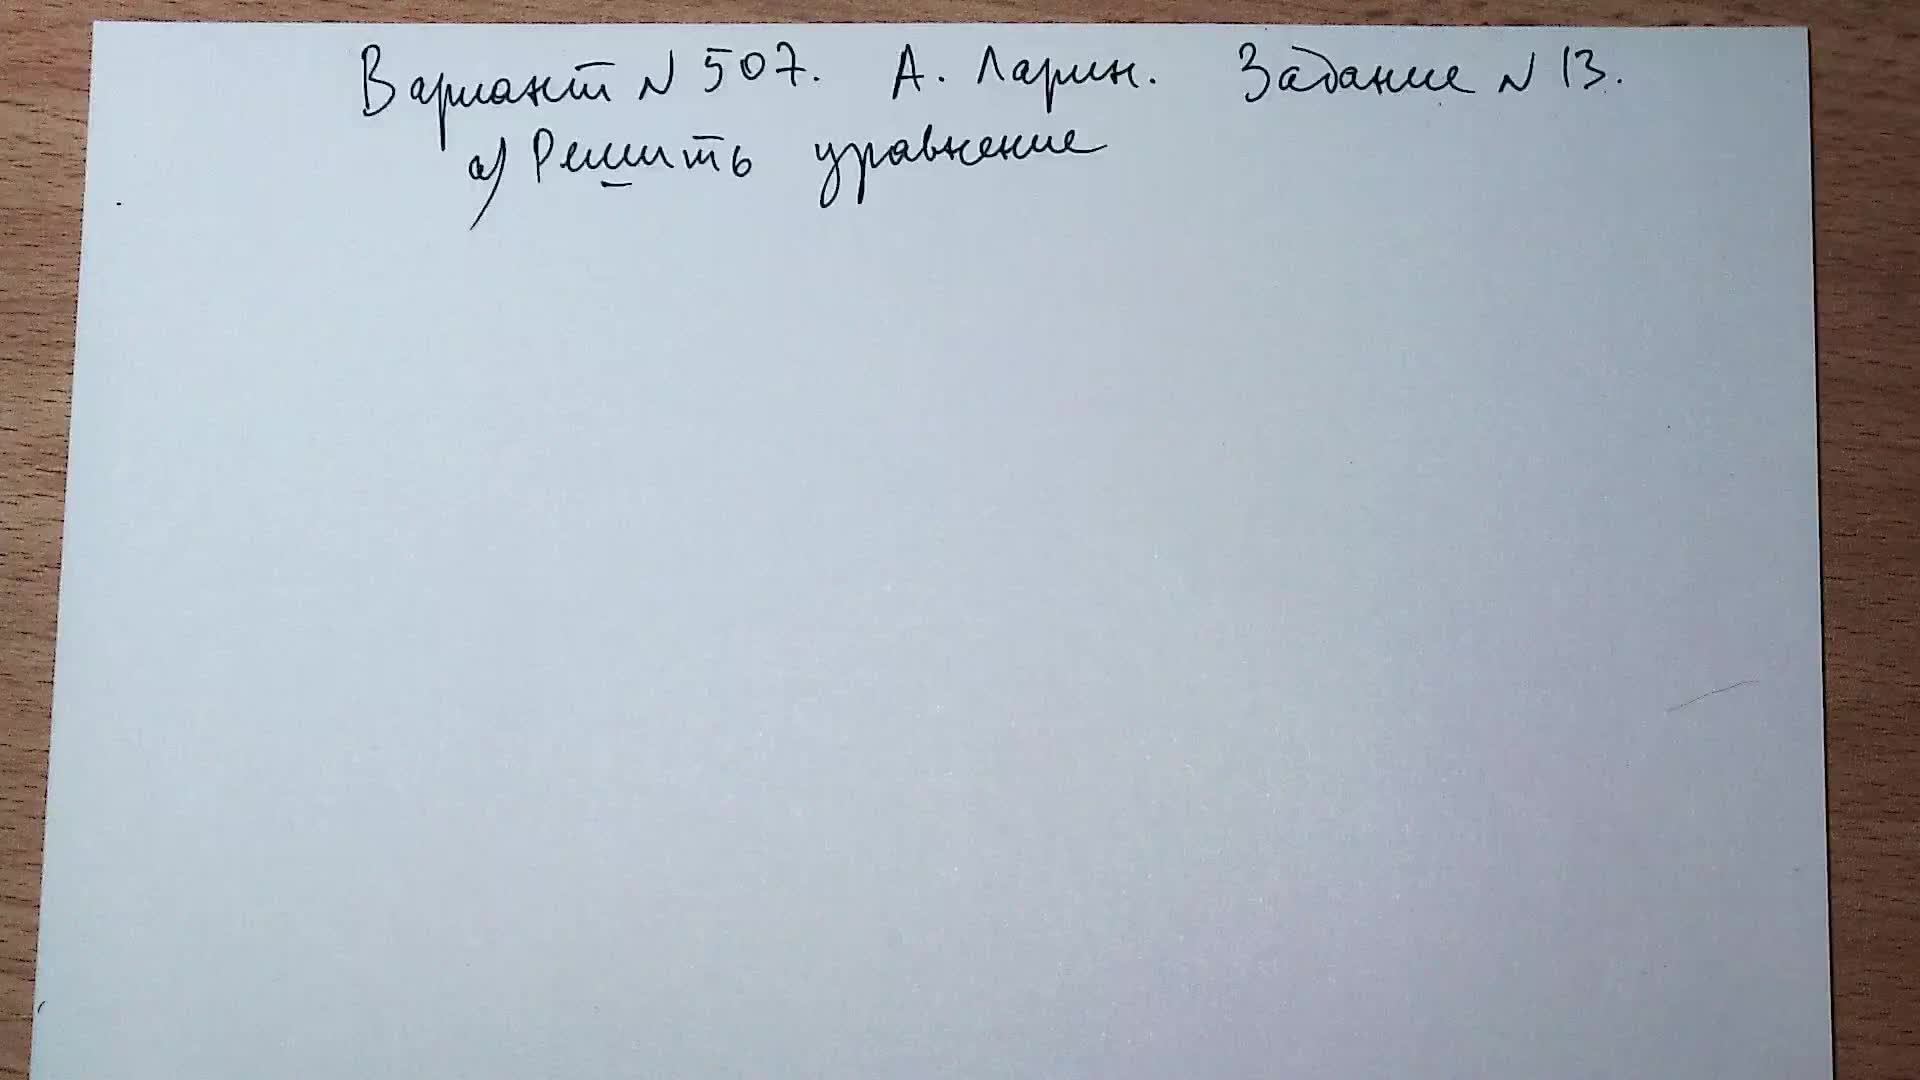 Вариант N 507. А. Ларин. Задание N 13.
а) Решить уравнение